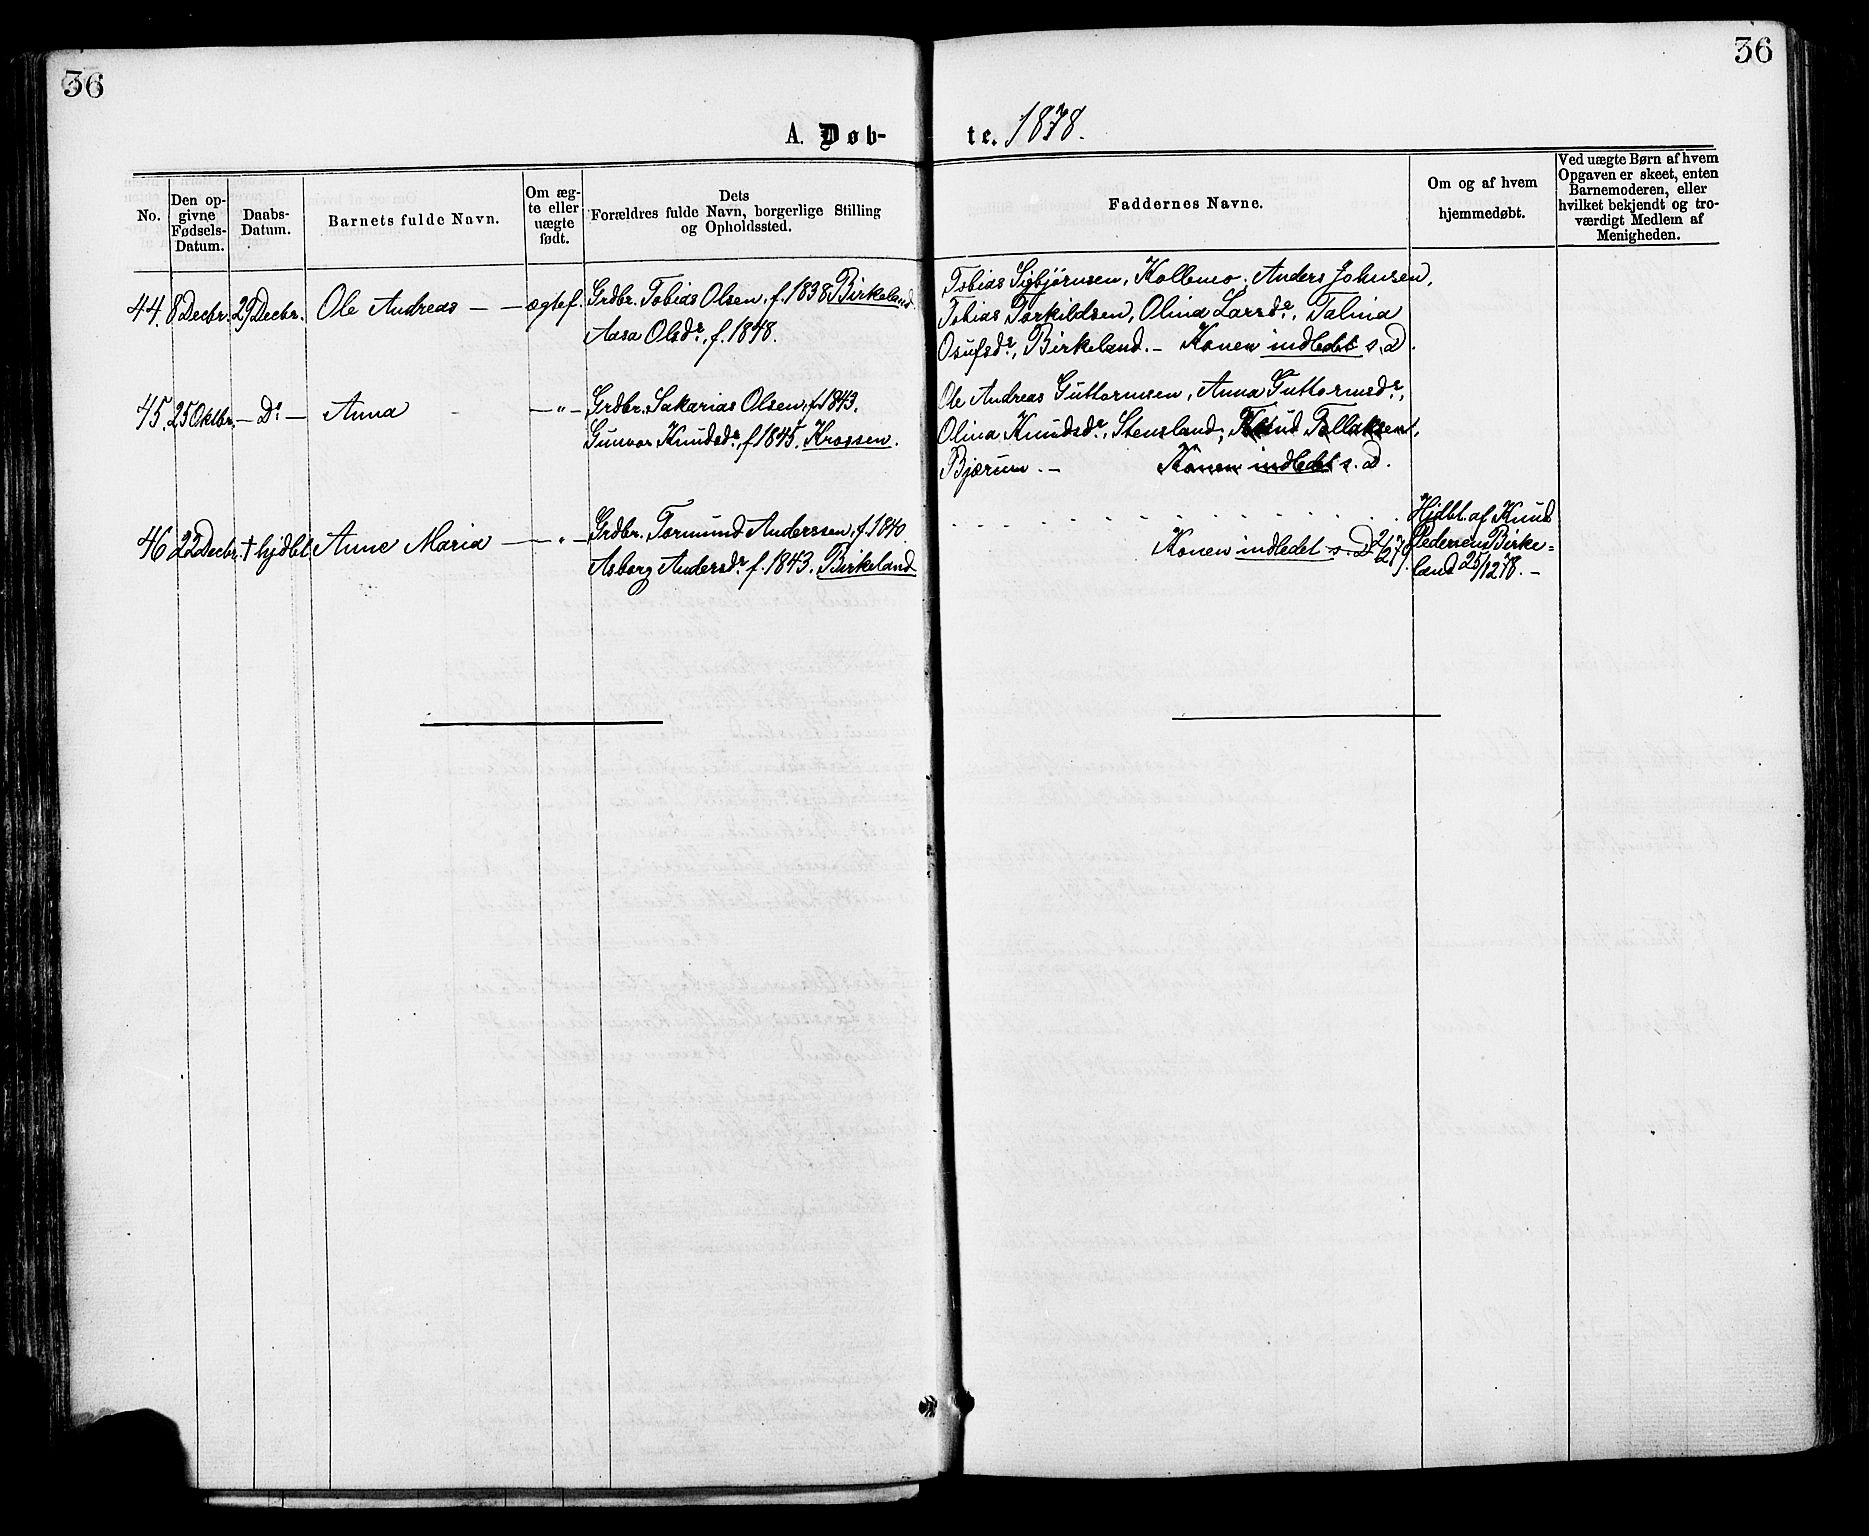 36
36
A. Døb-
te. 1878.
No.
Den op-
givne
Fødsels-
Datum.
Daabs-
Datum.
Barnets fulde Navn.
Om æg-
te eller
uægte
født.
Dets
Forældres fulde Navn, borgerlige Stilling
og Opholdssted.
Faddernes Navne.
Om og af hvem
hjemmedøbt.
Ved uægte Børn af hvem
Opgaven er skeet, enten
Barnemoderen, eller
hvilket bekjendt og tro-
værdigt Medlem af
Menigheden.
44. 8 Decbr. 29 Decbr. Ole Andreas — — ægtef. Grdbr. Tobias Olsen, f. 1838 Birkeland.
Aasa Olsdr., f. 1848.
Tobias Sigbjørnsen, Kollemo; Anders Johnsen,
Tobias Torkildsen, Olina Larsdr., Talina
Osufsdr., Birkeland. — Konen indledet s. D.
45. 25 Oktbr. — Do — Anna — " — Grdbr. Sakarias Olsen, f. 1843.
Gunvor Knudsdr., f. 1845. Krossen.
Ole Andreas Guttormsen, Anna Guttormsdr.,
Olina Knudsdr., Stensland; Knud Tollaksen,
Bjærum. — Konen indledet s. D.
46. 22 Decbr. † hjdbt. Anne Maria — — " — Grdbr. Tormund Anderssen, f. 1840.
Asborg Andersdr. f. 1843. Birkeland
Konen indledet s. D. 2/2 79.
Hjdbt. af Knud
Pedersens Birke=
land 25/12 78. —